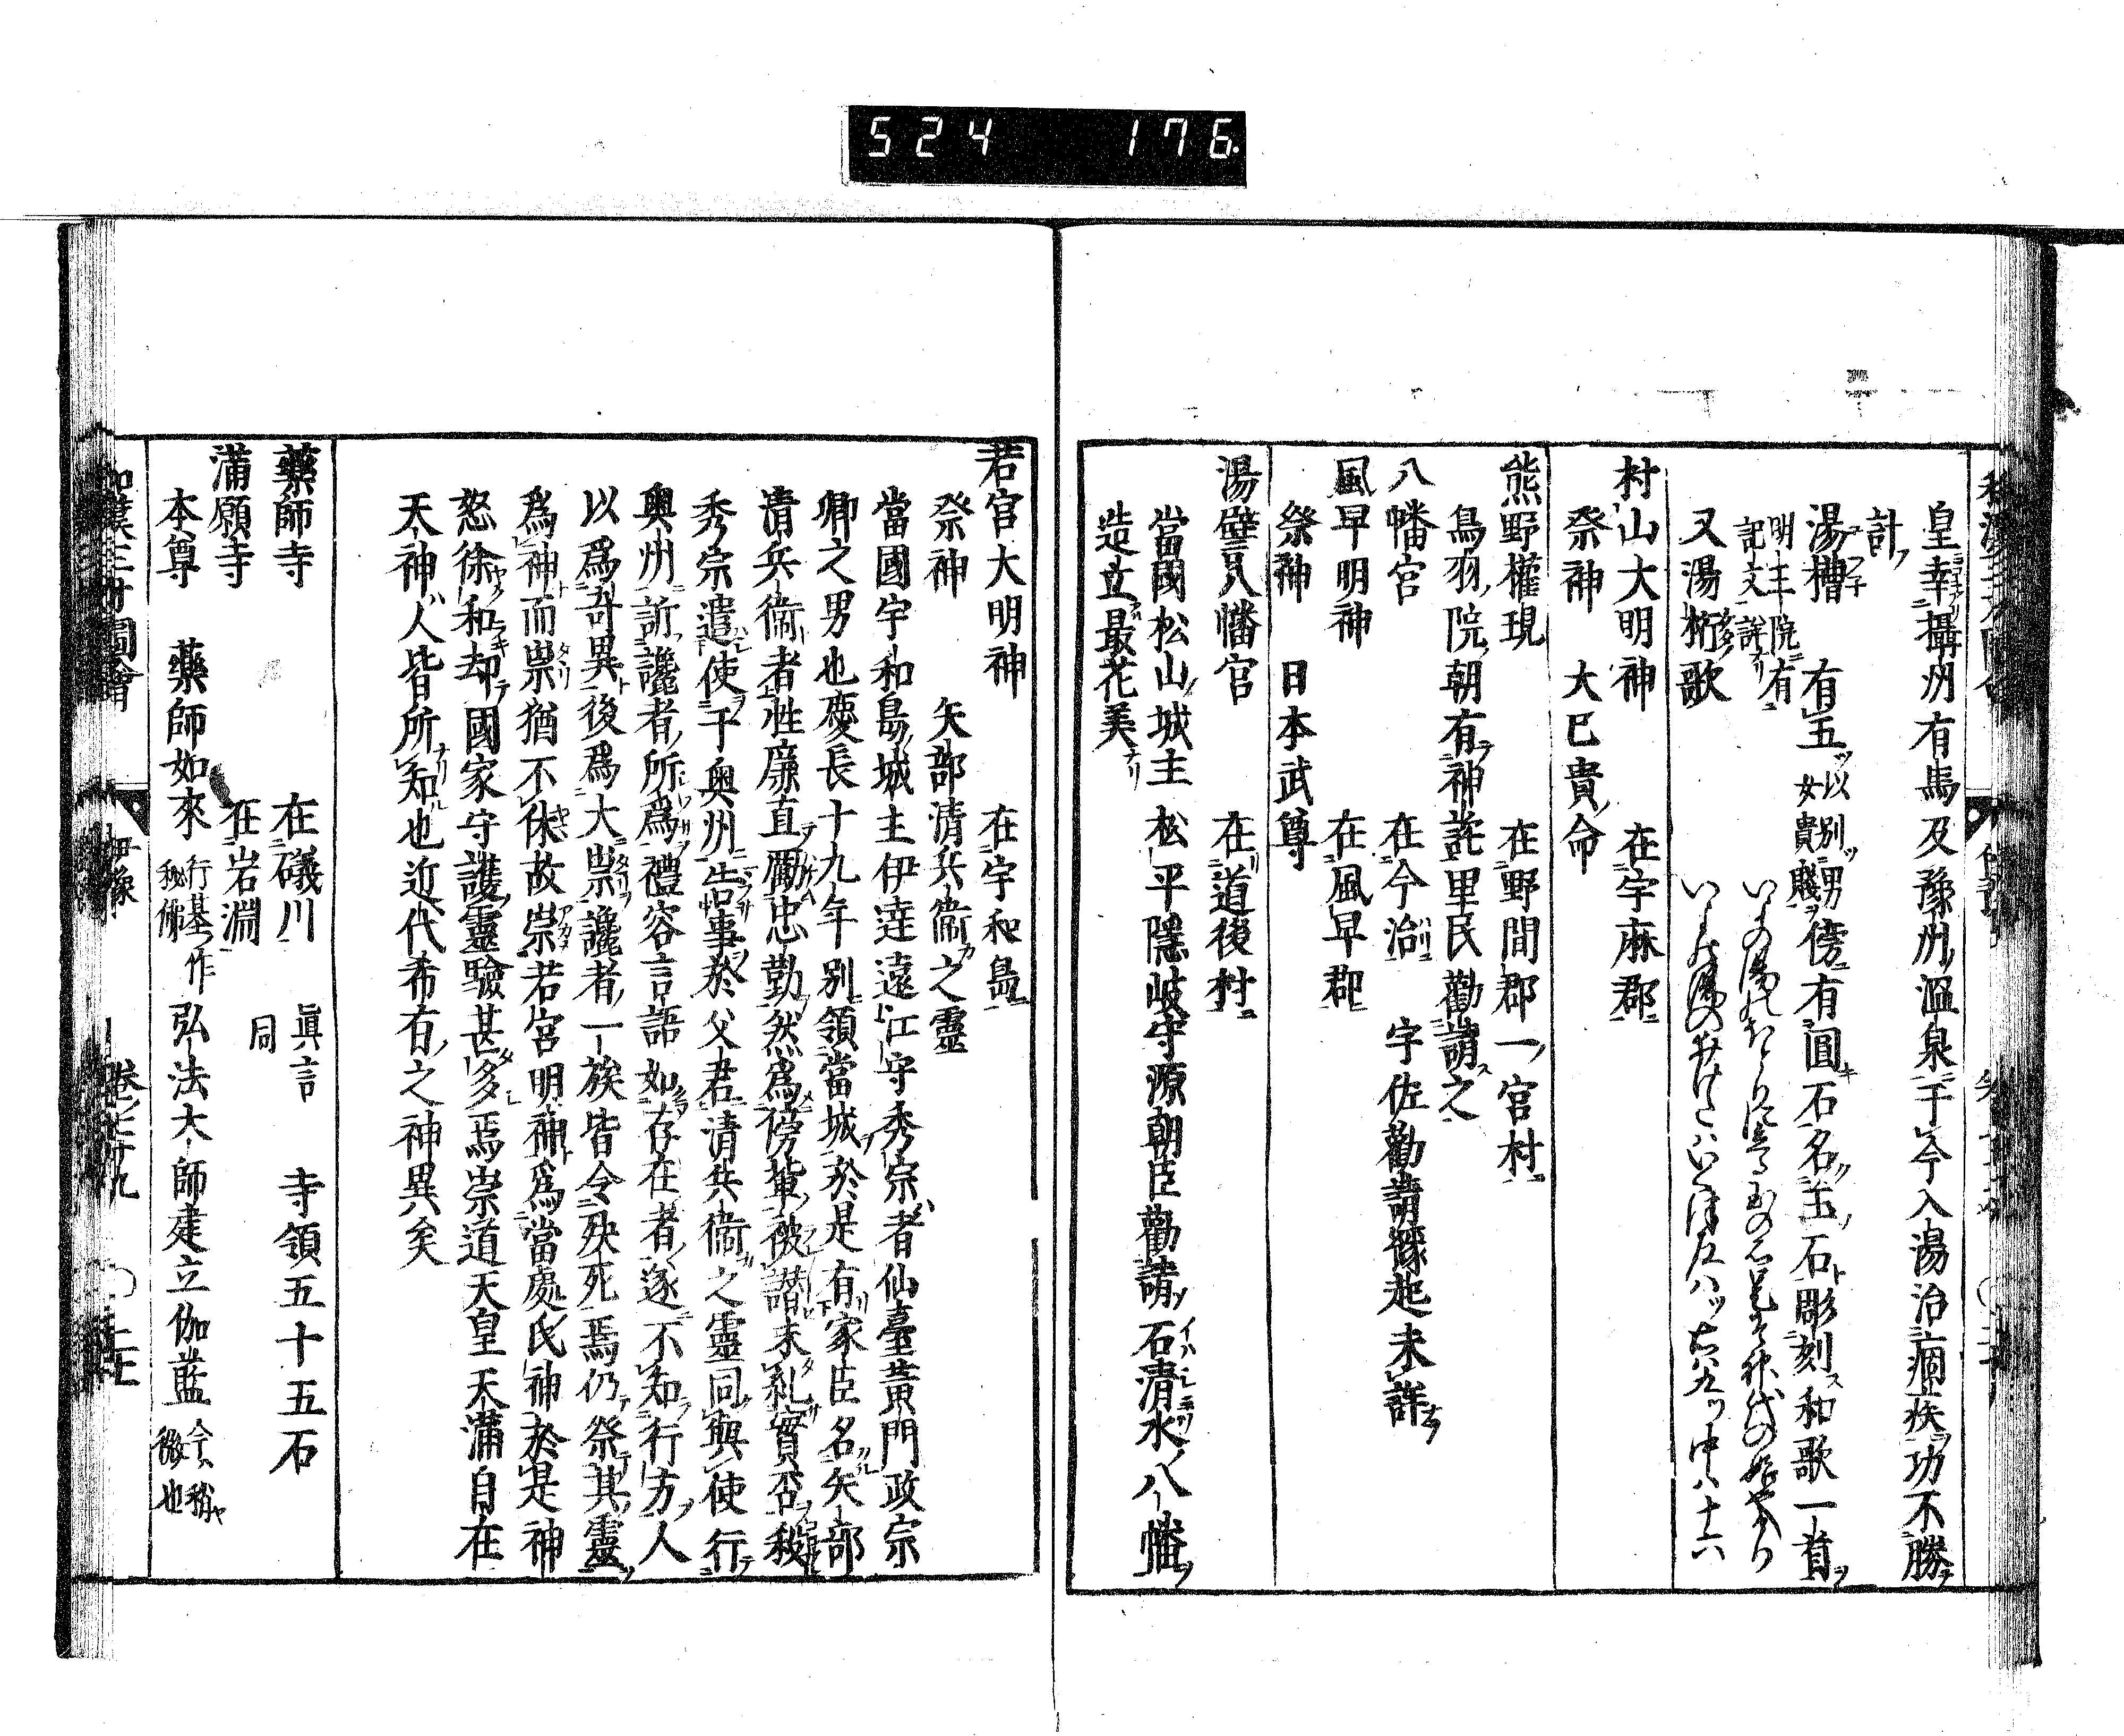 524 176.
皇幸攝州有馬及豫州溫泉于今入湯治痼疾功不勝
計
湯槽 有五ッ以別男女貴賤傍有圓石名玉ノ石彫刻ス和歌一首ヲ
明王院有記文詳ナリ
又湯桁歌
村山大明神 在宇麻郡
祭神 大已貴命
熊野權現 在野間郡一宮村
鳥羽院朝有神託里民勸請之
八幡宮 在今治 宇佐勸請縁起未詳
風早明神 在風早郡
祭神 日本武尊
湯壁八幡宮 在道後村
當國松山城主 松平隱岐守源朝臣勸請石清水八幡
造立最花美ナリ
若宮大明神 在宇和島
祭神 矢部清兵衞之靈
當國宇和島城主伊達遠江守秀宗者仙臺黃門政宗
卿之男也慶長十九年別領當城於是有家臣名矢部
清兵衞者性廉直勵忠勤然爲傍輩被譖未糺實否殺
秀宗遣使于奧州告事於父君清兵衞之靈同與使行
奧州訴讒者所爲禮容言語如存在者遂不知行方人
以爲奇異後爲大祟讒者一族皆令殃死焉仍祭其靈
爲神而祟猶不休故崇若宮明神爲當處氏神於是神
怒徐和却國家守護靈驗甚多焉崇道天皇天滿自在
天神人皆所知也近代希有之神異矣
藥師寺 在礒川 眞言 寺領五十五石
滿願寺 在岩淵 同
本尊 藥師如來 行基作秘佛 弘法大師建立伽藍 今稍微也
和漢三才圖會 伊豫 卷之七十九